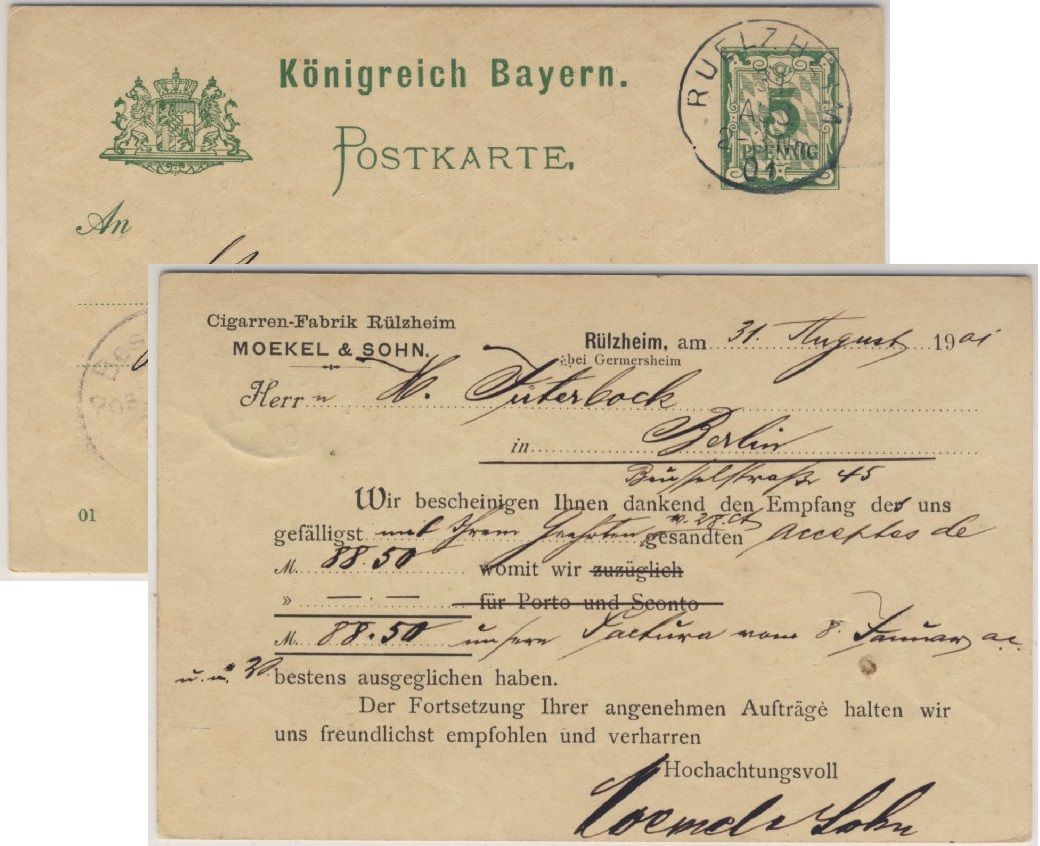 Königreich Bayern.
POSTKARTE.
RUELZHEIM
31
AUG
01
5
PFENNIG
An
01
Cigarren-Fabrik Rülzheim
MOEKEL & SOHN.
Rülzheim, am 31. August 1901
bei Germersheim
Herrn H. Jüterbock
in Berlin
Beusselstraße 45
Wir bescheinigen Ihnen dankend den Empfang des uns
gefälligst mit Ihrem Geehrten v. 28. ct gesandten acceptes de
M. 88.50 womit wir zuzüglich
» — . — für Porto und Sconto
M. 88.50 unsere Factura vom 8. Januar a.c.
bestens ausgeglichen haben.
Der Fortsetzung Ihrer angenehmen Aufträgè halten wir
uns freundlichst empfohlen und verharren
Hochachtungsvoll
Moekel & Sohn